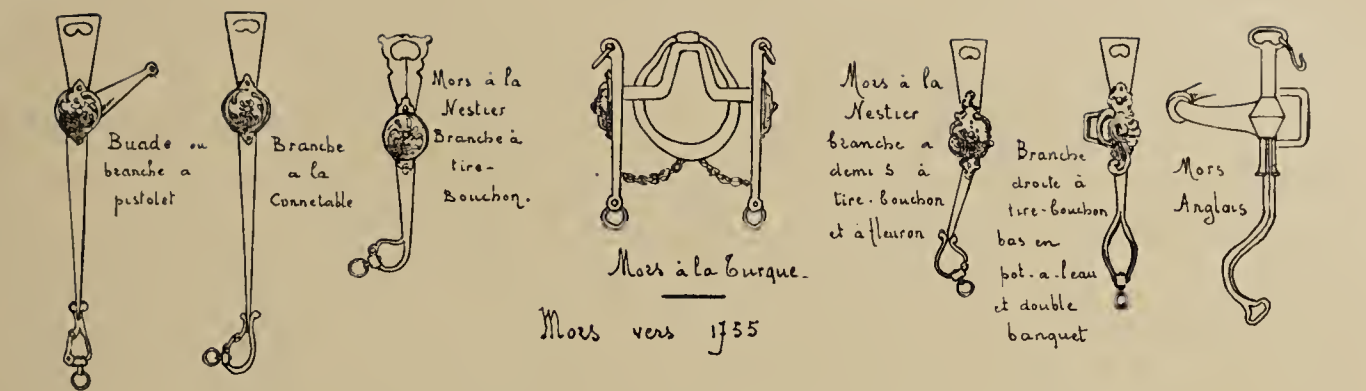 Buade ou
branche a
pistolet
Branche
a la
Connetable
Mors à la
Nestier
Branche à
tire-
Bouchon.
Mors à la Turque.
Mors vers 1755
Mors à la
Nestier
branche a
demi S à
tire-bouchon
et à fleuron
Branche
droite à
tire-bouchon
bas en
pot-a-l'eau
et double
banquet
Mors
Anglais